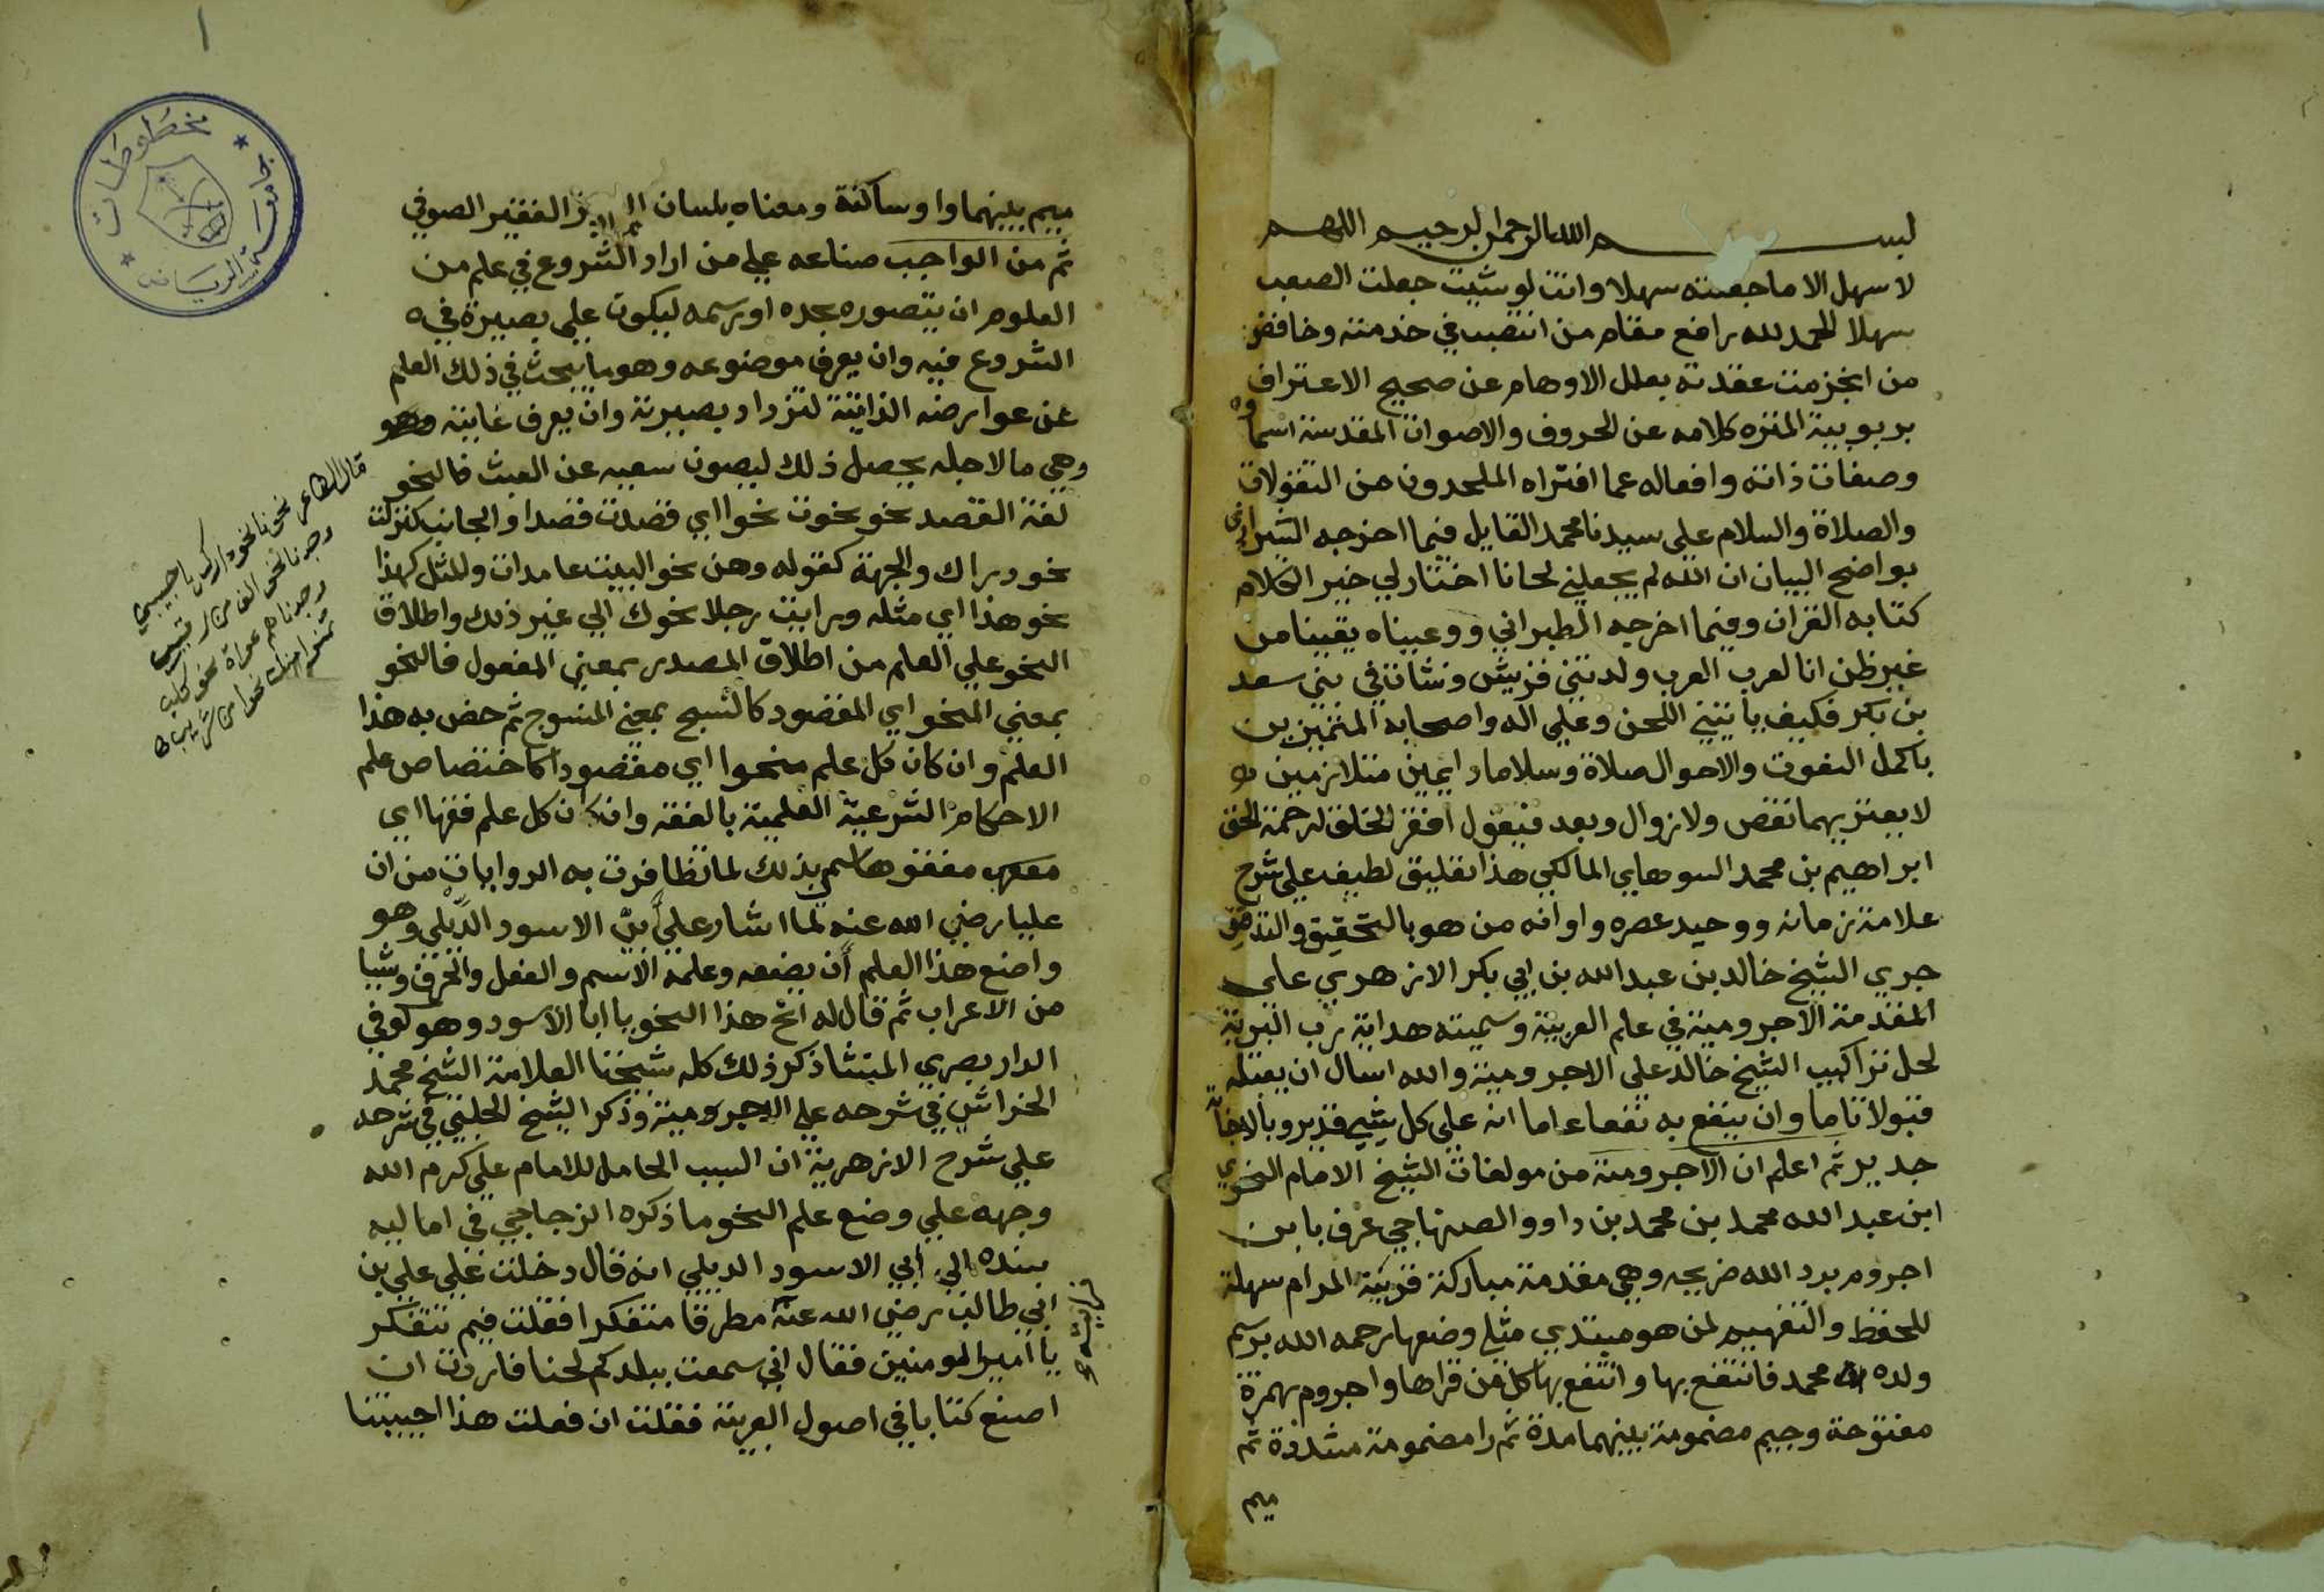 بسم الله الرحمن الرحيم اللهم
لا سهل الا ما جعلته سهلا وانت لو شيت جعلت الصعب
سهلا الحمد لله رافع مقام من انتصب في خدمته وخافض
من انجزمت عقدته بعلل الاوهام عن صحيح الاعتراف
بربوبيته المنزه كلامه عن الحروف والاصوات المقدسة اسماوه
وصفات ذاته وافعاله عما افتراه الملحدون من التقولات
والصلاة والسلام علي سيدنا محمد القايل فيما اخرجه الشيرازي
بواضح البيان ان الله لم يجعلني لحانا اختار لي خير الكلام
كتابه القران وفيما اخرجه الطبراني ووعيناه يقينا من
غير ظن انا لعرب العرب ولدتني قريش ونشات في بني سعد
بن بكر فكيف ياتيني اللحن وعلي آله واصحابه المتميزين
باكمل النعوت والاحوال صلاة وسلاما دايمين متلازمين
لا يعتريهما نقص ولا زوال وبعد فيقول افقر الخلق لرحمة الحق
ابراهيم بن محمد السوهايي المالكي هذا تعليق لطيف علي شرح
علامة زمانه ووحيد عصره واوانه من هو بالتحقيق والتدقيق
حري الشيخ خالد بن عبد الله بن ابي بكر الازهري علي
المقدمة الاجرومية في علم العربية وسميته هداية رب البرية
لحل تراكيب الشيخ خالد علي الاجرومية والله اسال ان يقبله
قبولا تاما وان ينفع به نفعا عاما انه علي كل شي قدير وبالاجابة
جدير ثم اعلم ان الاجرومية من مولفات الشيخ الامام النحوي
ابن عبد الله محمد بن محمد بن داوو الصنهاجي عرف بابن
اجروم برد الله ضريحه وهي مقدمة مباركة قريبة المرام سهلة
للحفظ والتفهيم لمن هو مبتدي مثلي وضعها رحمه الله برسم
ولده محمد فانتفع بها وانتفع بها كل من قراها واجروم بهمزة
مفتوحة وجيم مضمومة بينهما مدة ثم را مضمومة مشددة ثم
ميم
ميم بينهما واو ساكنة ومعناه بلسان البربر الفقير الصوفي
ثم من الواجب صناعه علي من اراد الشروع في علم من
العلوم ان يتصوره بحده او برسمه ليكون علي بصيرة في
الشروع فيه وان يعرف موضوعه وهو ما يبحث في ذلك العلم
عن عوارضه الذاتية لتزداد بصيرته وان يعرف غايته وهو
وهي ما لاجله يحصل ذلك ليصون سعيه عن العبث فالنحو
لغة القصد نحو نحوت نحوا اي قصدت قصدا والجانب كنزلت
نحو دراك والجهة كقوله وهن نحو البيت عامدات والمثل كهذا
نحو هذا اي مثله ورايت رجلا نحوك الي غير ذلك واطلاق
النحو علي العلم من اطلاق المصدر بمعني المفعول فالنحو
بمعني المنحو اي المقصود كالنسج بمعني المنسوج ثم خص به هذا
العلم وان كان كل علم منحوا اي مقصودا كاختصاص علم
الاحكام الشرعية العلمية بالفقه وان كان كل علم فقها اي
مفقوها سمي بذلك لما تظافرت به الروايات من ان
عليا رضي الله عنه لما اشار علي ابي الاسود الديلي وهو
واضع هذا العلم أن يضعه وعلمه الاسم والفعل والحرف وشيا
من الاعراب ثم قال له انح هذا النحو يا ابا الاسود وهو كوفي
الدار بصري المنشا ذكر ذلك كله شيخنا العلامة الشيخ محمد
الخراشي في شرحه علي الاجرومية وذكر الشيخ الحلبي في شرحه
علي شرح الازهرية ان السبب الحامل للامام علي كرم الله
وجهه علي وضع علم النحو ما ذكره الزجاجي في اماليه
بسنده الي أبي الاسود الديلي انه قال دخلت علي علي بن
ابي طالب رضي الله عنه مطرقا متفكرا فقلت فيم تتفكر
يا امير المومنين فقال اني سمعت ببلدكم لحنا فاردت ان
اصنع كتابا في اصول العربية فقلت ان فعلت هذا احييتنا
قال الشاعر نحونا نحو دارك يا حبيبي
وجدنا نحو الف من رقيب
وجدناهم نحو كلب
مخطوطات
جامعة الرياض
١